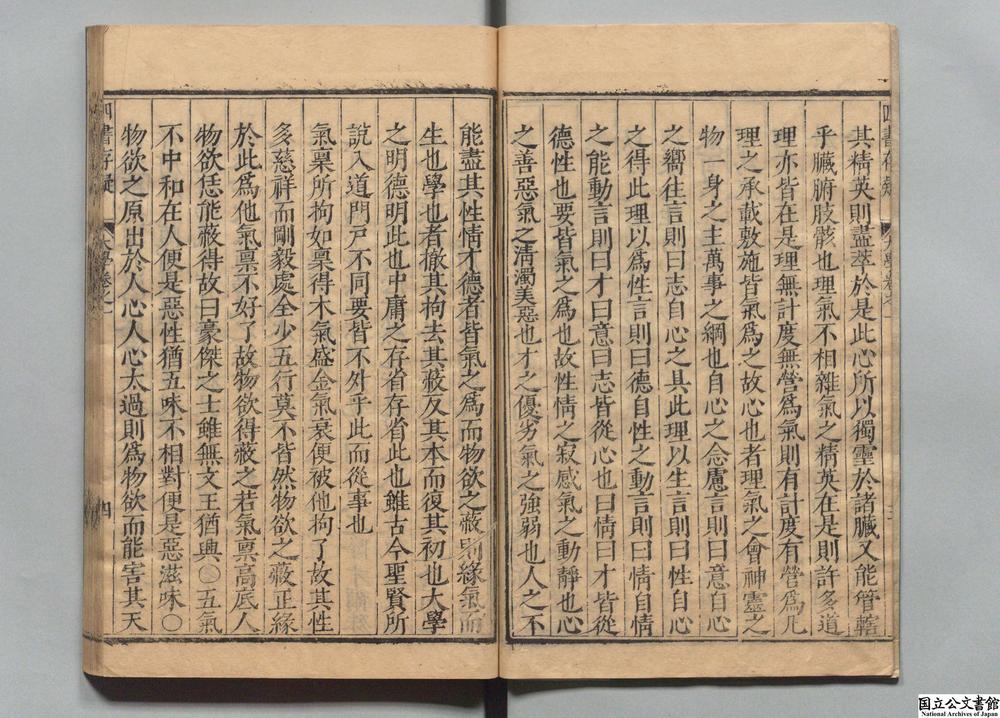 四書存疑 大學卷之一 三
其精英則盡萃於是此心所以獨靈於諸臟又能管轄
乎臟腑肢骸也理氣不相雜氣之精英在是則許多道
理亦皆在是理無計度無營為氣則有計度有營為凡
理之承載敷施皆氣為之故心也者理氣之會神靈之
物一身之主萬事之綱也自心之念慮言則曰意自心
之嚮往言則曰志自心之具此理以生言則曰性自心
之得此理以為性言則曰德自性之動言則曰情自情
之能動言則曰才曰意曰志皆從心也曰情曰才皆從
德性也要皆氣之為也故性情之寂感氣之動靜也心
之善惡氣之清濁美惡也才之優劣氣之強弱也人之不
能盡其性情才德者皆氣之為而物欲之蔽則緣氣而
生也學也者徹其拘去其蔽反其本而復其初也大學
之明德明此也中庸之存省存省此也雖古今聖賢所
說入道門戶不同要皆不外乎此而從事也
氣稟所拘如稟得木氣盛金氣衰便被他拘了故其性
多慈祥而剛毅處全少五行莫不皆然物欲之蔽正緣
於此為他氣稟不好了故物欲得蔽之若氣稟高底人
物欲恁能蔽得故曰豪傑之士雖無文王猶興〇五氣
不中和在人便是惡性猶五味不相對便是惡滋味〇
物欲之原出於人心人心太過則為物欲而能害其天
四書存疑 大學卷之一 四
国立公文書館
National Archives of Japan